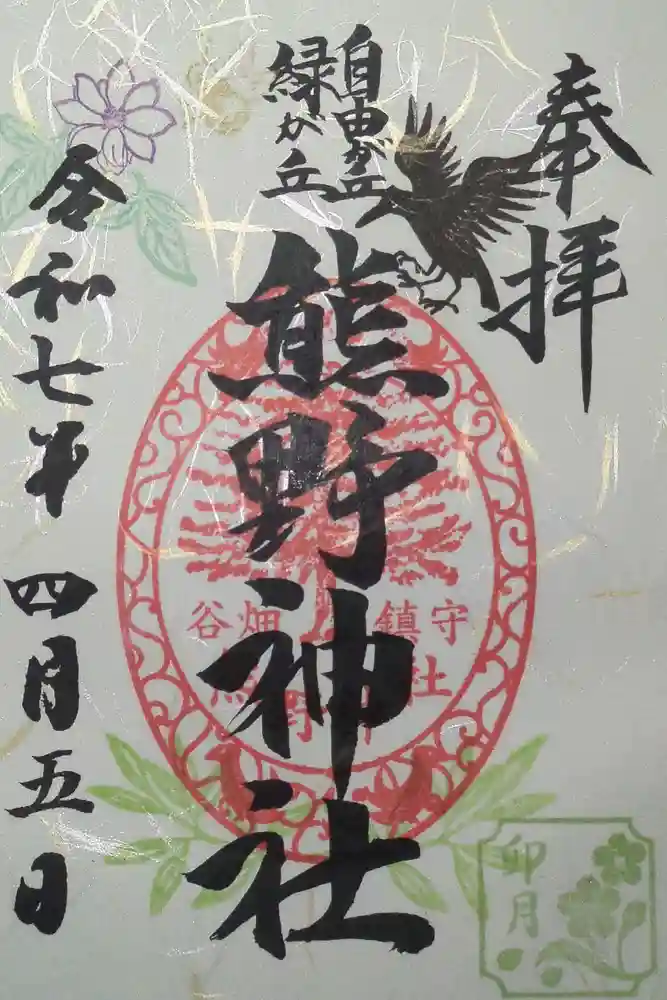 奉拝
自由が丘
緑が丘
熊野神社
令和七年 四月五日
谷畑 鎮守
熊野神社
卯月